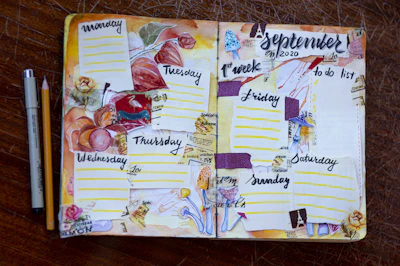 Monday
Tuesday
Thursday
Wednesday
September!
2020
1st week
to do list
Friday
Saturday
Sunday